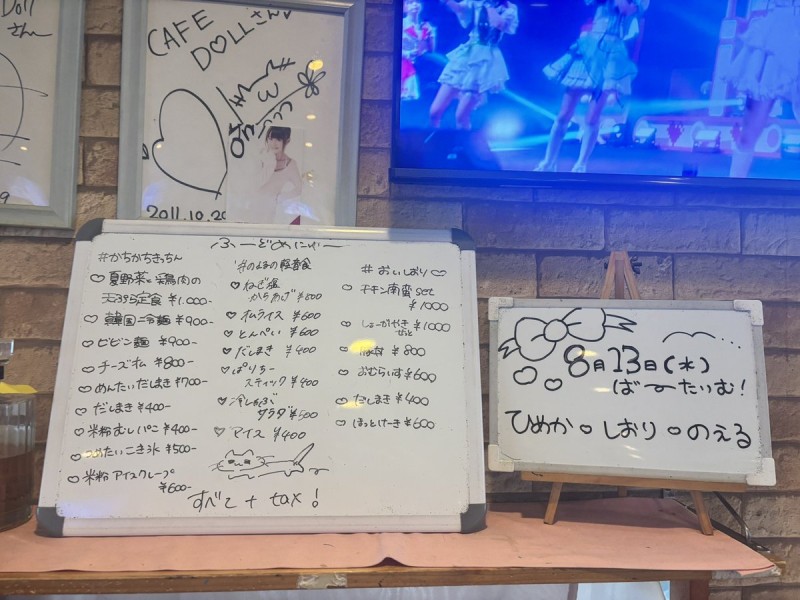 Doll
さんへ
CAFE
DOLLさんへ
2011.10.20
ふーどめにゅー
#かちかちきっちん
♡夏野菜と鶏肉の
天ぷら定食 ¥1,000-
♡韓国冷麺 ¥900-
♡ビビン麺 ¥900-
♡チーズオム ¥800-
♡めんたいだしまき ¥700-
♡だしまき ¥400-
♡米粉むしぱんこ ¥400-
¥500-
♡米粉アイスクレープ
¥600-
軽食
♡ねぎ塩
からあげ ¥500
♡オムライス ¥600
♡とんぺい ¥600
♡だしまき ¥400
♡ぱりちー
スティック ¥400
♡冷しゃぶ
サラダ ¥500
♡アイス ¥400
すべて + tax!
#おいしおり♡
♡チキン南蛮set
¥1000
♡しょーがやき
せっと ¥1000
¥800
♡おむらいす ¥600
♡だしまき ¥400
♡ほっとけーき ¥600
8月13日(水)
ばーたいむ!
ひめか♡しおり♡のえる